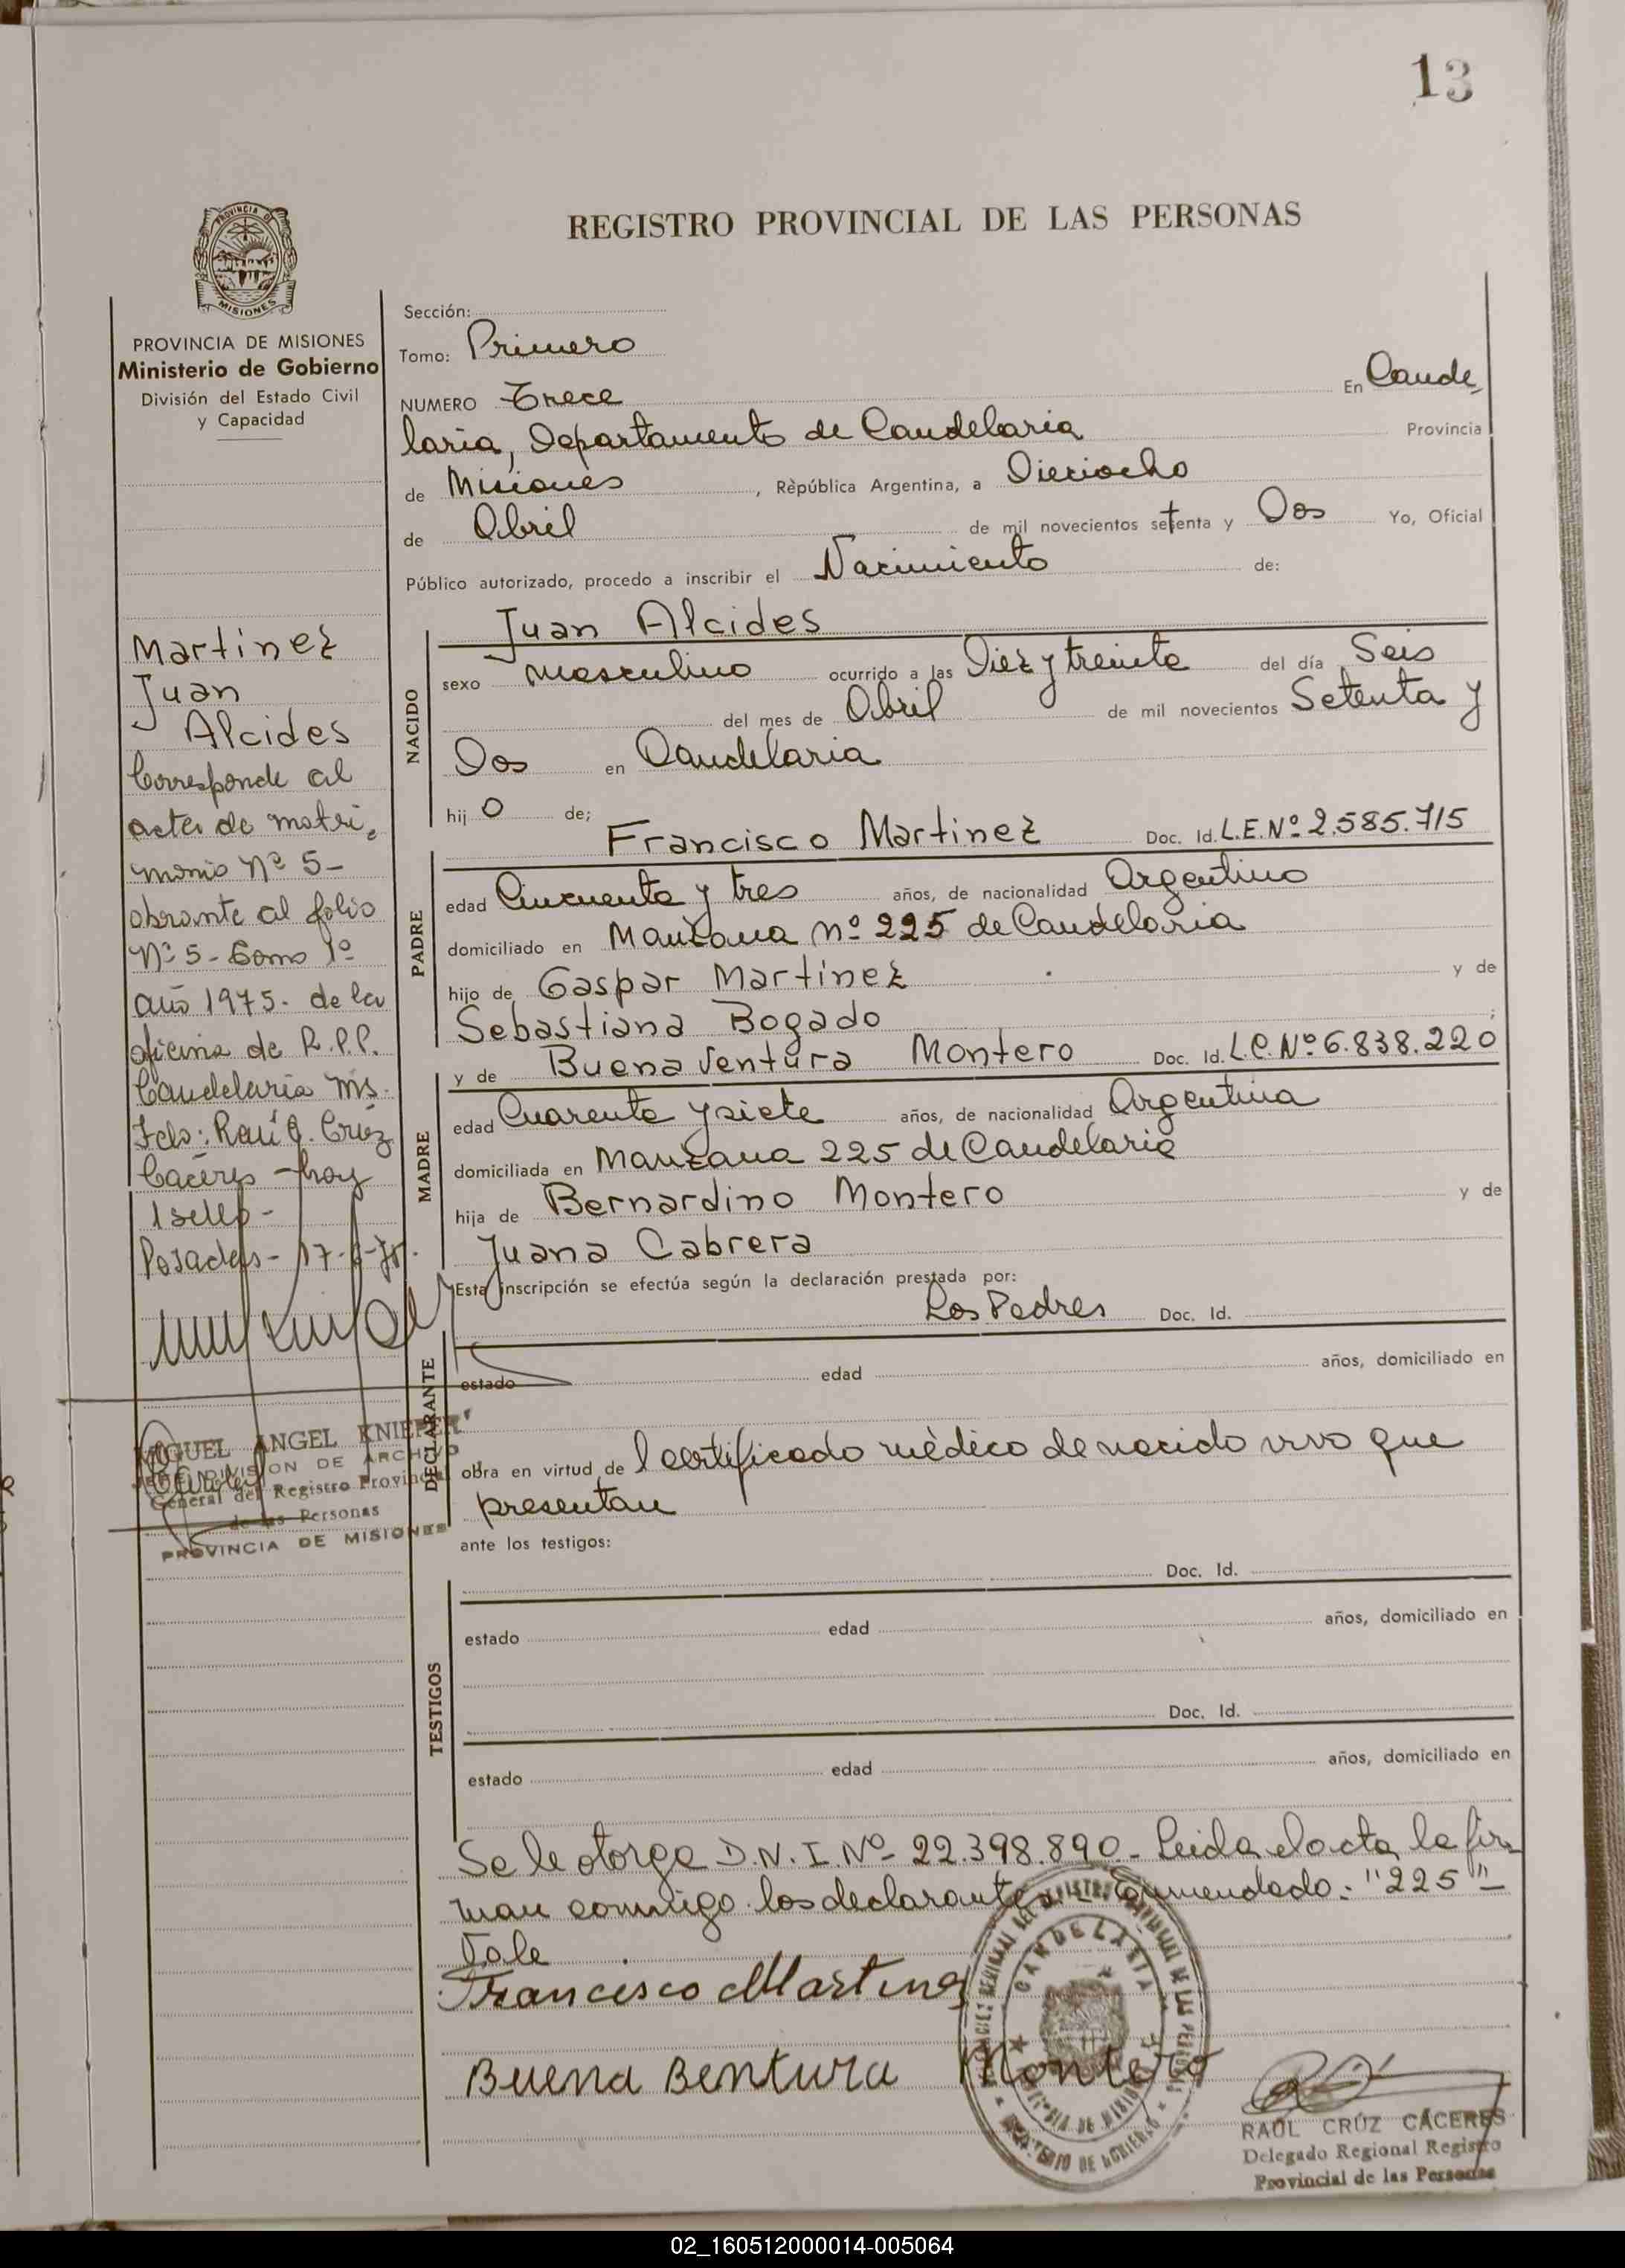 13
REGISTRO PROVINCIAL DE LAS PERSONAS
PROVINCIA DE
MISIONES
PROVINCIA DE MISIONES
Ministerio de Gobierno
División del Estado Civil
y Capacidad
Martinez
Juan
Alcides
Corresponde al
acta de matri
monio Nº 5-
obrante al folio
Nº 5- Tomo 1º
año 1975- de la
oficina de R.P.P.
Candelaria Ms.
Fdo: Raúl Cruz
Caceres - hay
1 sello -
Posadas - 17-
MIGUEL ANGEL KNIEPER
JEFE DIVISION DE ARCHIVO
General del Registro Provincial
de las Personas
PROVINCIA DE MISIONES
Sección:
Tomo: Primero
NUMERO Trece En Cande
laria, Departamento de Candelaria Provincia
de Misiones, Rèpública Argentina, a Dieciocho
de Abril de mil novecientos setenta y Dos Yo, Oficial
Público autorizado, procedo a inscribir el Nacimiento de:
NACIDO
Juan Alcides
sexo masculino ocurrido a las Diez y treinta del día Seis
del mes de Abril de mil novecientos Setenta y
Dos en Candelaria
hij o de;
PADRE
Francisco Martinez Doc. Id. L.E.Nº 2.585.715
edad Cincuenta y tres años, de nacionalidad Argentino
domiciliado en Manzana nº 225 de Candelaria
hijo de Gaspar Martinez y de
Sebastiana Bogado ;
MADRE
y de Buena Ventura Montero Doc. Id. L.C.Nº 6.838.220
edad Cuarenta y siete años, de nacionalidad Argentina
domiciliada en Manzana 225 de Candelaria
hija de Bernardino Montero y de
Juana Cabrera
Esta inscripción se efectúa según la declaración prestada por:
DECLARANTE
Los Padres Doc. Id.
estado edad años, domiciliado en
obra en virtud de l certificado mèdico de nacido vivo que
presentan
ante los testigos:
TESTIGOS
Doc. Id.
estado edad años, domiciliado en
Doc. Id.
estado edad años, domiciliado en
Se le otorga D.N.I. Nº 22.398.890- Leida el acta la fir
man conmigo los declarantes - Enmendado: "225"-
Vale
Francisco Martinez
Buena Bentura Montero
CANDELARIA
RAUL CRUZ CACERES
Delegado Regional Registro
Provincial de las Personas
02_160512000014-005064